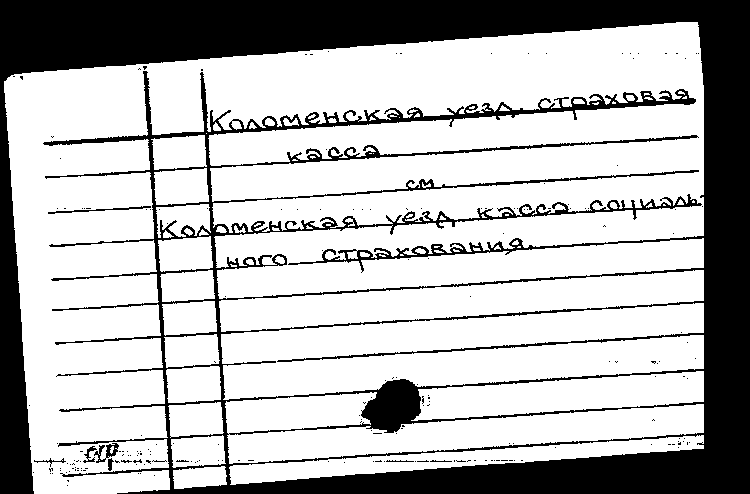 Коломенская уезд. страховая
касса
см.
Коломенская уезд. касса социаль-
ного страхования.